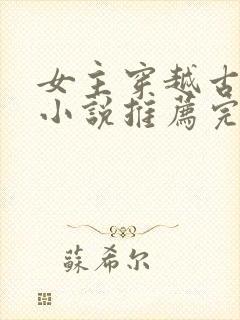 女主穿越古
小說推薦完
蘇希尔